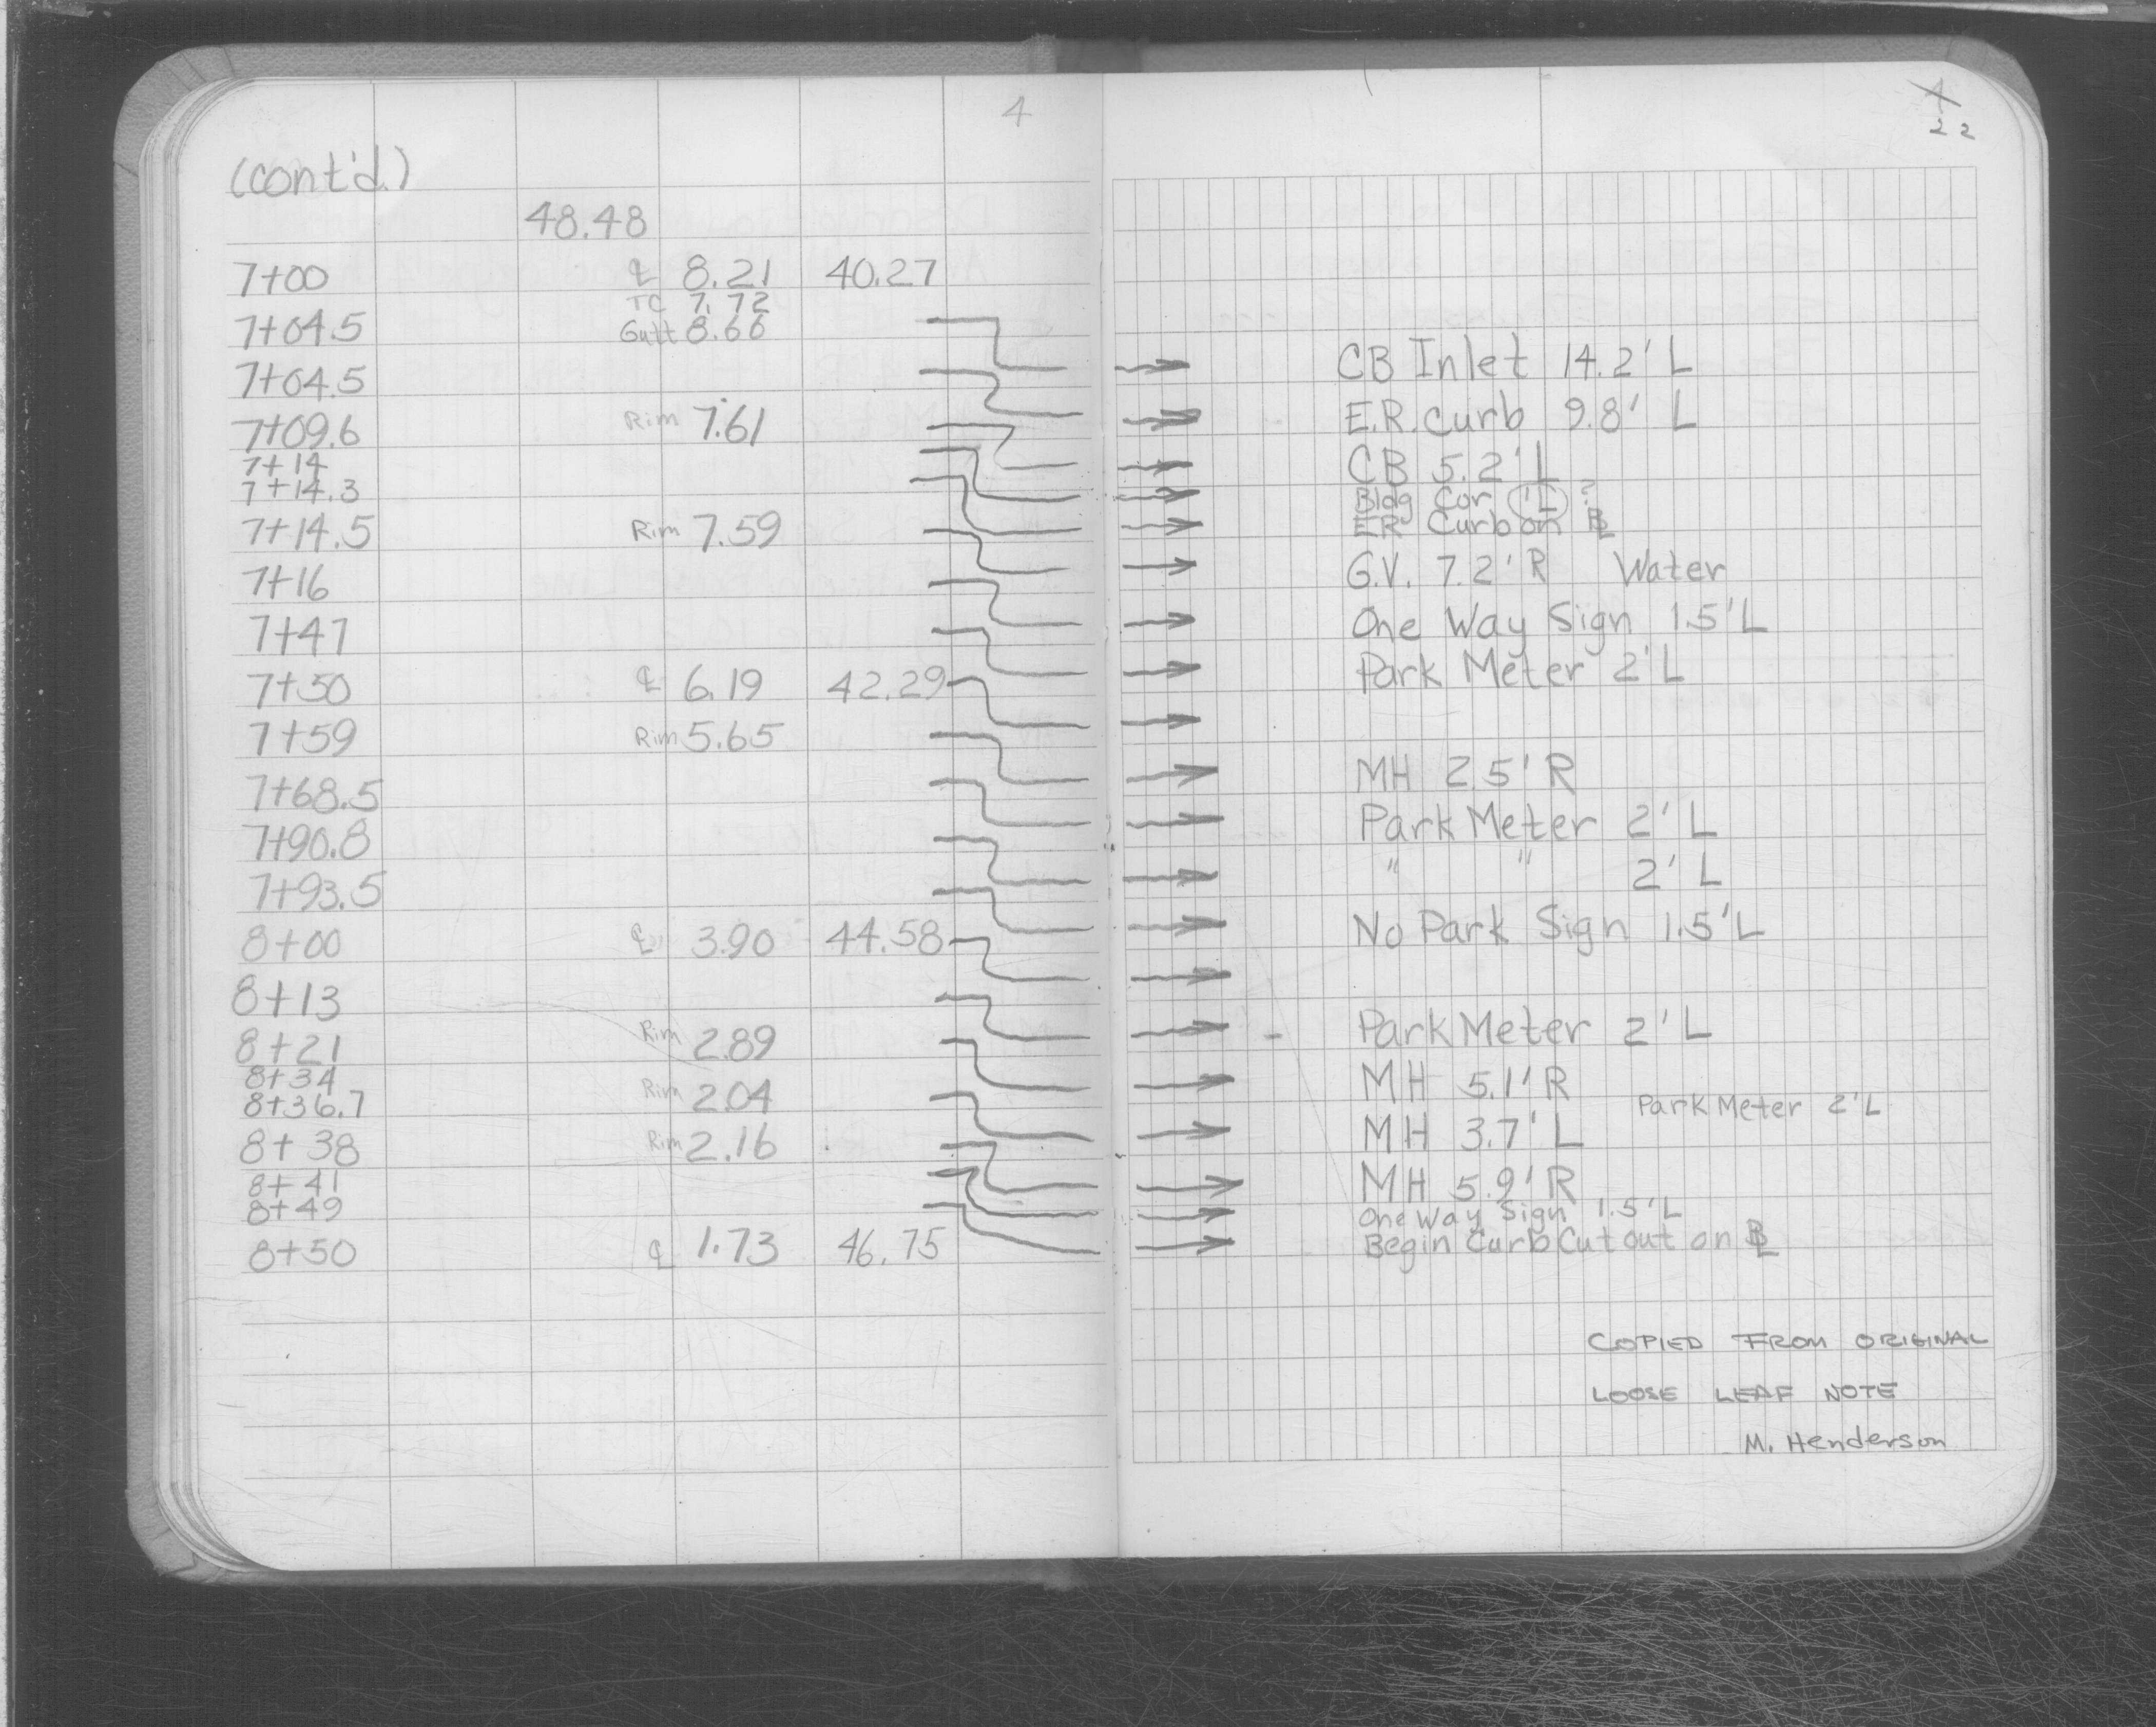 4
(cont'd.)
48.48
7+00 ℄ 8.21 40.27
TC 7.72
7+04.5 Gutt 8.66
7+04.5
7+09.6 Rim 7.61
7+14
7+14.3
7+14.5 Rim 7.59
7+16
7+47
7+50 ℄ 6.19 42.29
7+59 Rim 5.65
7+68.5
7+90.8
7+93.5
8+00 ℄ 3.90 44.58
8+13
8+21 Rim 2.89
8+34
8+36.7 Rim 2.04
8+38 Rim 2.16
8+41
8+49
8+50 ℄ 1.73 46.75
4
22
CB Inlet 14.2' L
E.R. Curb 9.8' L
CB 5.2' L
Bldg Cor 'L ?
ER Curb on BL
G.V. 7.2' R Water
One Way Sign 1.5' L
Park Meter 2' L
MH 2.5' R
Park Meter 2' L
" " 2' L
No Park Sign 1.5' L
- Park Meter 2' L
MH 5.1' R
Park Meter 2' L
MH 3.7' L
MH 5.9' R
One Way Sign 1.5' L
Begin Curb Cut out on BL
COPIED FROM ORIGINAL
LOOSE LEAF NOTE
M. Henderson